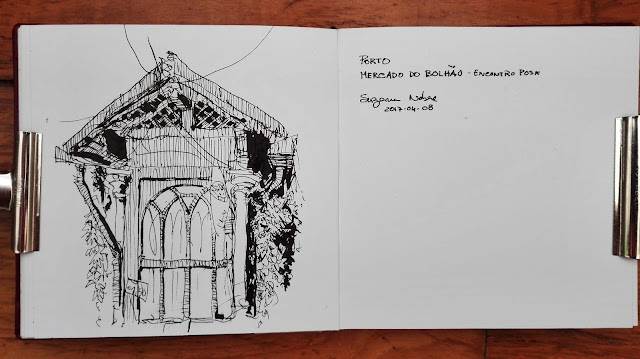 PORTO
MERCADO DO BOLHÃO - ENCONTRO POSK
Suzana Nobre
2017-04-08